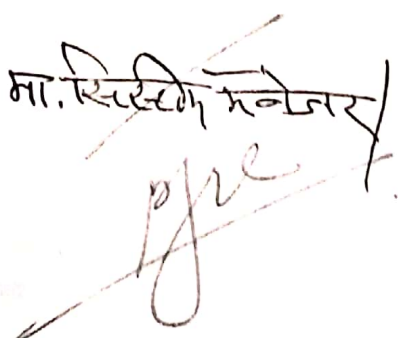 मा. सिस्टीम मॅनेजर